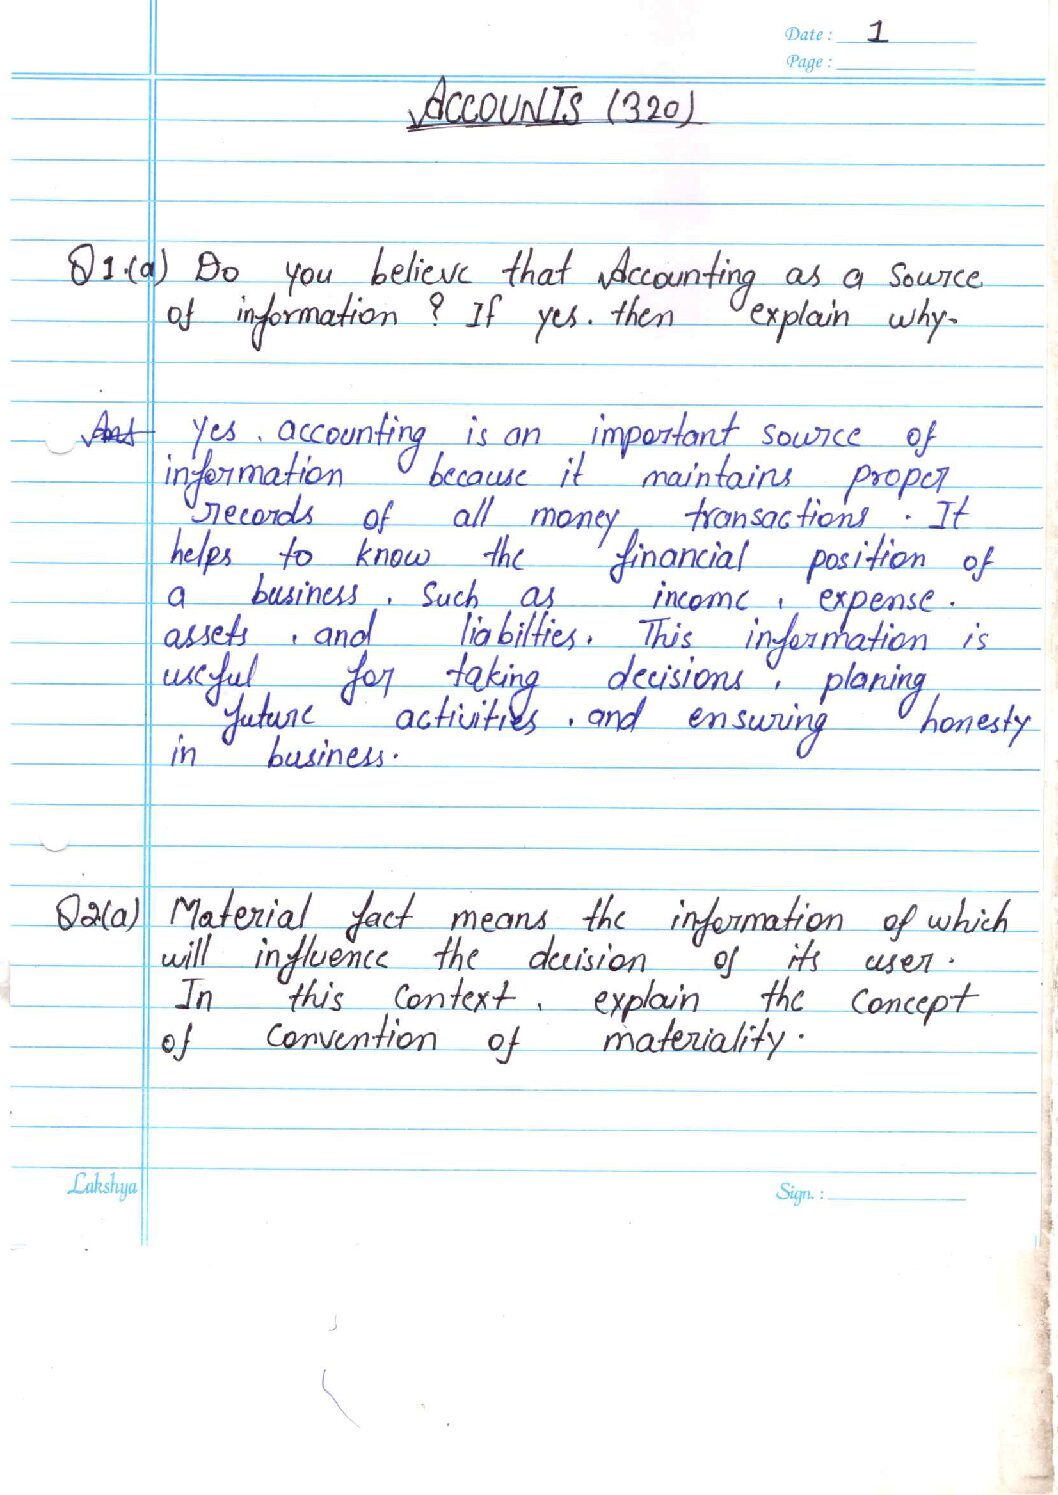 Date : 1
Page :
ACCOUNTS (320)
Q1.(a) Do you believe that Accounting as a source
of information ? If yes. then explain why.
Ans yes , accounting is an important source of
information because it maintains proper
records of all money transactions . It
helps to know the financial position of
a business , such as income , expense .
assets , and liabilties. This information is
useful for taking decisions , planing
future activities , and ensuring honesty
in business.
Q2(a) Material fact means the information of which
will influence the decision of its user .
In this context , explain the concept
of convention of materiality .
Lakshya
Sign. :